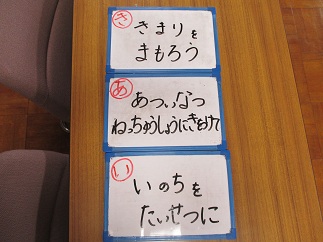 き
きまりを
まもろう
あ
あついなつ
ねっちゅうしょうにきをつけて
い
いのちを
たいせつに